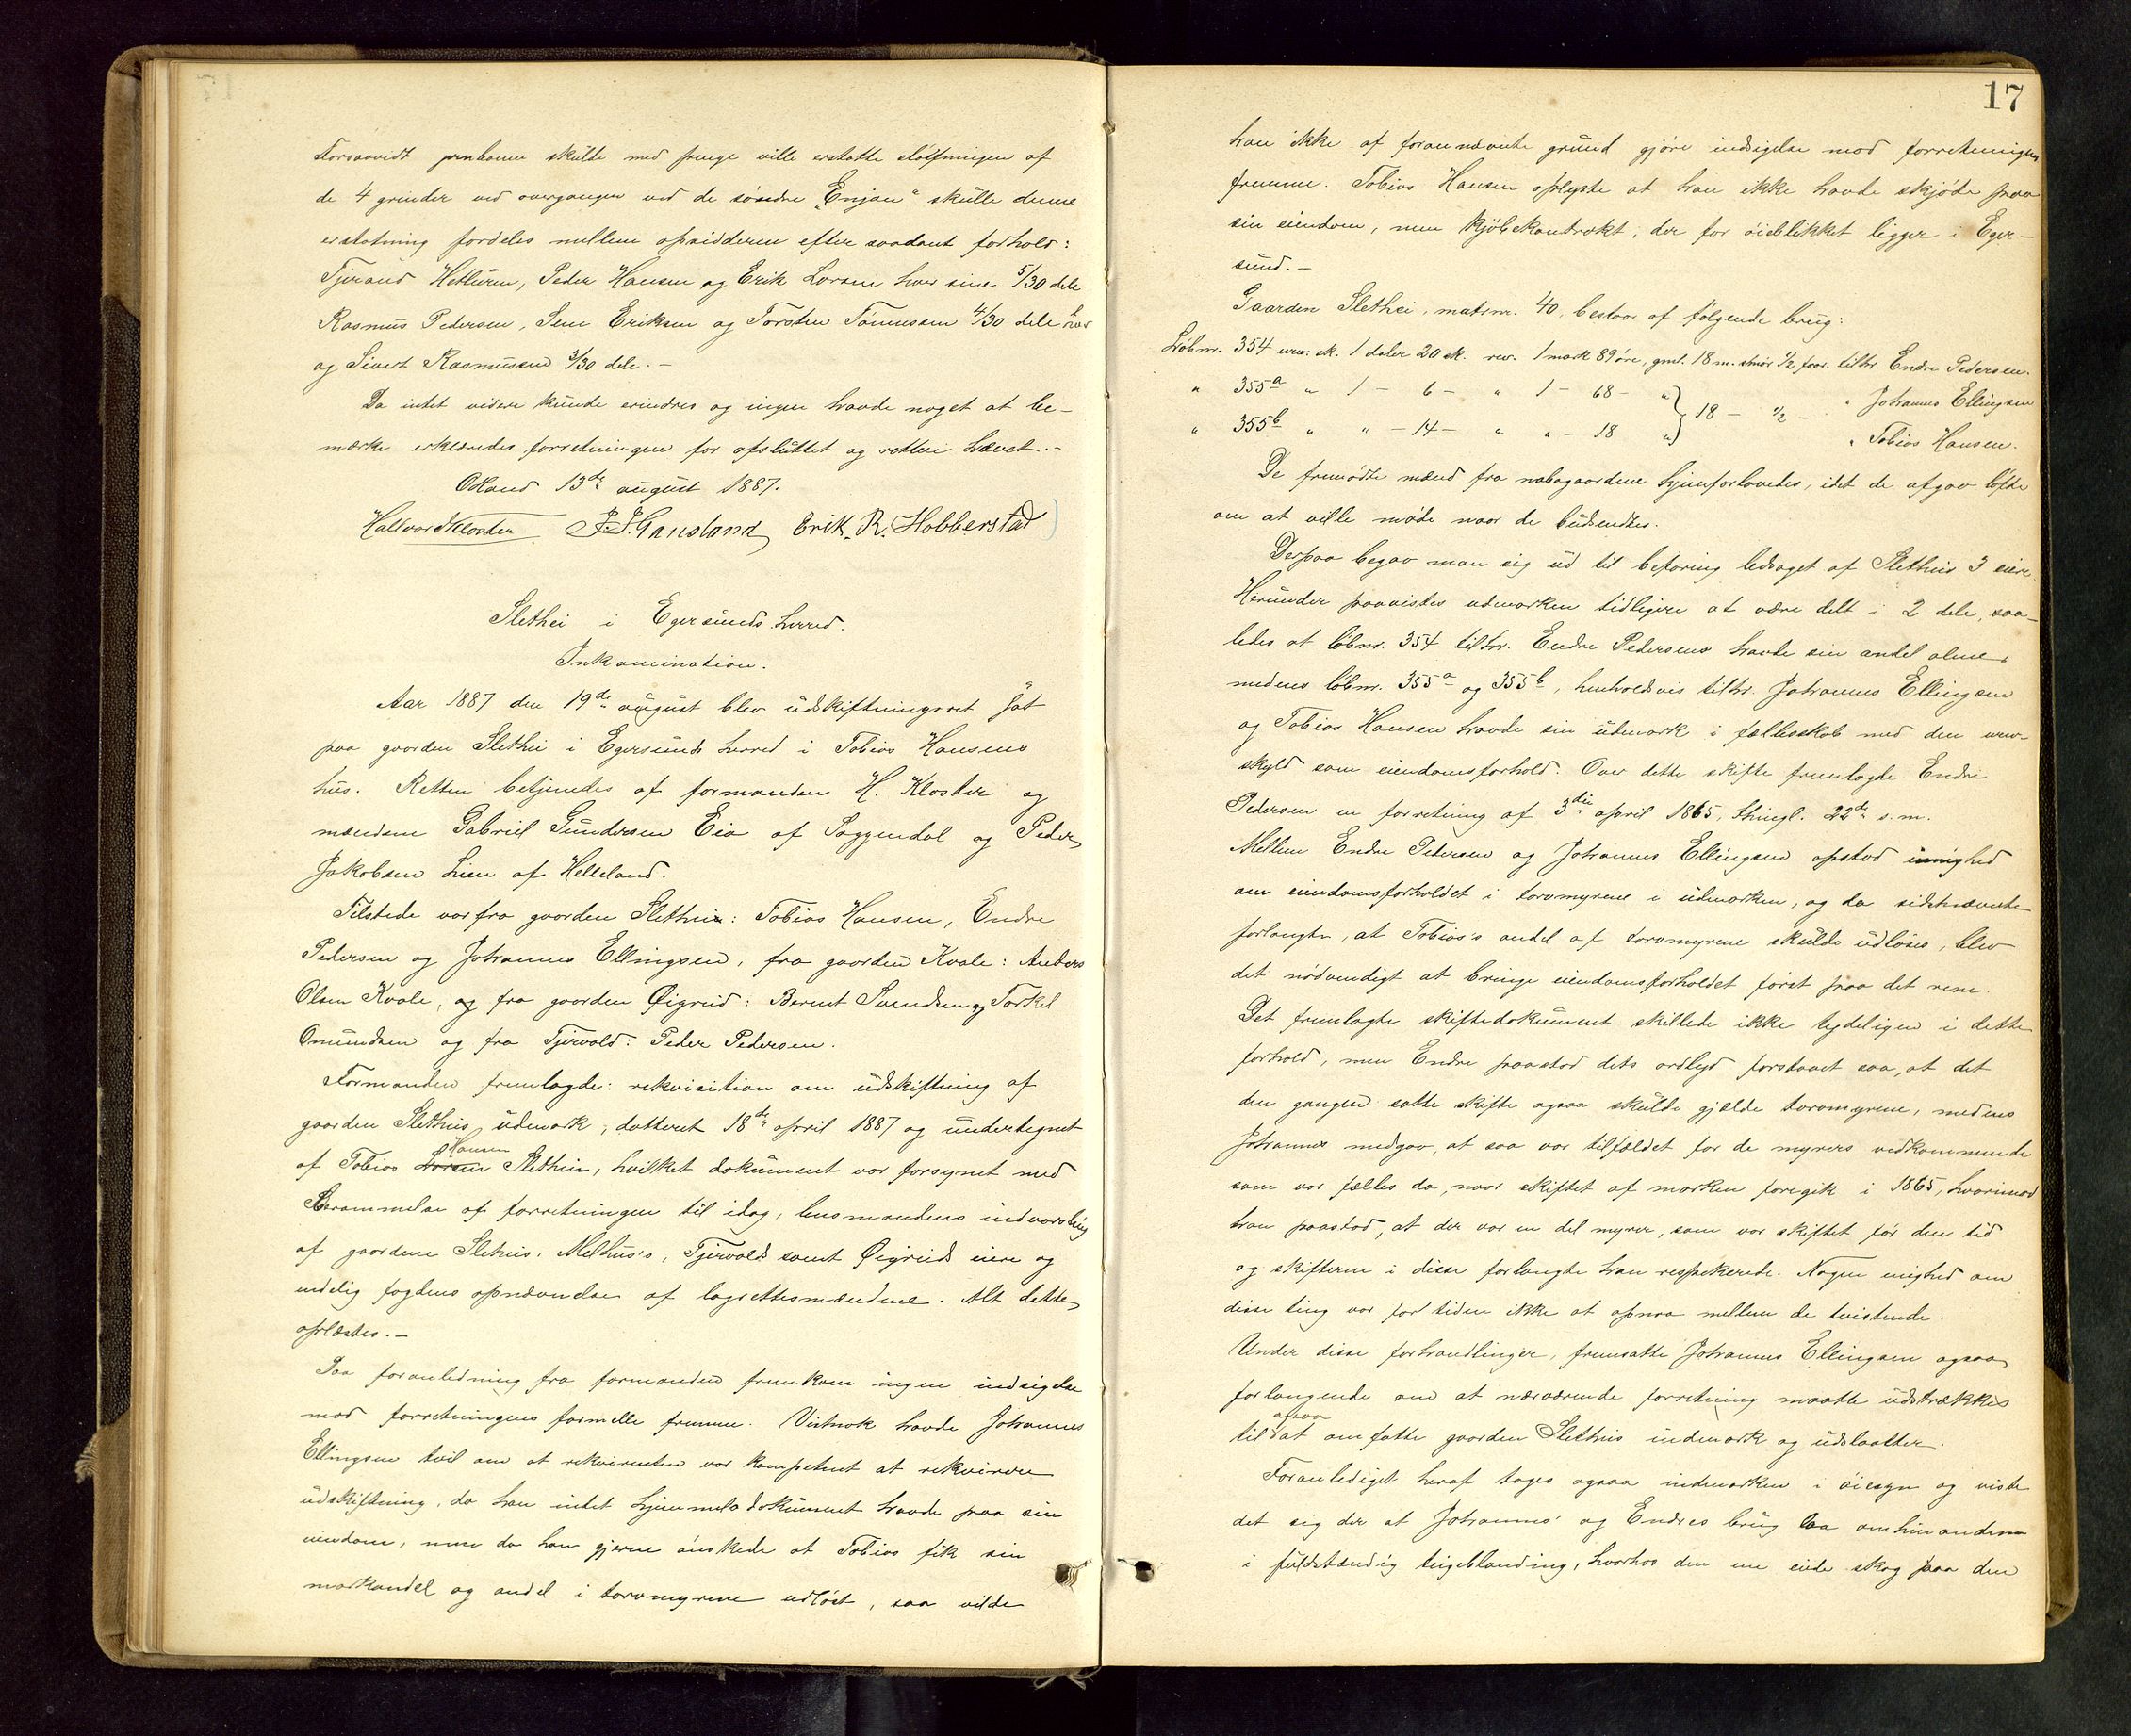 Forsaavidt jernbanen skulde med penge ville erstatte sløifningen af
de 4 grinder ved overgangen ved de søndre „Enjan“ skulle denne
erstatning fordeles mellem opsidderne efter saadant forhold:
Tjerand Hetluren, Peder Hansen og Erik Larsen hver sine 5/30 dele
Rasmus Pedersen, Sem Eriksen og Torsten Tønnessen 4/30 dele hver
og Sivert Rasmussen 3/30 dele. —
Da intet videre kunde erindres og ingen havde noget at be-
mærke erklæredes forretningen for afsluttet og retten hævet. –
Odland 13de august 1887.
Hallvard Kloster J. J. Gausland Erik. R. Hobberstad
Slethei i Egersunds herred.
Inkamination.
Aar 1887 den 19de august blev udskiftningsret sat
paa gaarden Slethei i Egersunds herred i Tobias Hansens
hus. Retten betjentes af formanden H. Kloster og
mændene Gabriel Gundersen Eia af Soggendal og Peder
Jakobsen Lien af Helleland.
Tilstede var fra gaarden Slethei: Tobias Hansen, Endre
Pedersen og Johannes Ellingsen, fra gaarden Kvale: Anders
Olsen Kvale, og fra gaarden Øigreid: Berent Svendsen og Torkel
Omundsen og fra Tjervold: Peder Pedersen.
Formanden fremlagde: rekvisition om udskiftning af
gaarden Sletheis udmark, datteret 18de april 1887 og undertegnet
Hansen
af Tobias Larsen Slethei, hvilket dokument var forsynet med
Berammelse af forretningen til idag, lensmandens indvarsling
af gaardene Sletheis, Melhus's, Tjervolds samt Øigreids eiere og
endelig fogdens opnævnelse af lagrettesmændene. Alt dette
oplæstes. —
Paa foranledning fra formanden fremkom ingen indsigelse
mod forretningens formelle fremme. Vistnok havde Johannes
Ellingsen tvil om at rekvirenten var kompetent at rekvirere
udskiftning, da han intet hjemmelsdokument havde paa sin
eiendom, men da han gjerne ønskede at Tobias fik sin
markandel og andel i torvmyrene udløst, saa vilde
17
han ikke af forannævnte grund gjøre indsigelse mod forretningens
fremme. Tobias Hansen oplyste at han ikke havde skjøde paa
sin eiendom, men kjøbekontrakt, der for øieblikket ligger i Eger-
sund. –
Gaarden Slethei, matrnr. 40, bestaar af følgende brug:
Løbnr. 354 urev. sk. 1 daler 20 sk. rev. 1 mark 89 øre, gml. 18 m. smør 1/2 faar. tilhr. Endre Pedersen.
„ 355a „ 1 – 6 – „ 1 – 68 – „ } 18 – 1/2 – „ Johannes Ellingsen
„ 355b „ „ – 14 – „ „ – 18 „ „ Tobias Hansen.
De fremødte mænd fra nabogaardene hjemforlovedes, idet de afgav løfte
om at ville møde naar de budsendtes.
Derpaa begav man sig ud til befaring ledsaget af Sletheis 3 eiere.
Herunder paavistes udmarken tidligere at være delt i 2 dele, saa-
ledes at løbnr. 354 tilhr. Endre Pedersens havde sin andel alene,
medens løbnr. 355a og 355b, henholdsvis tilhr. Johannes Ellingsen
og Tobias Hansen havde sin udmark i fællesskab med den urev.
skyld som eiendomsforhold. Over dette skifte fremlagde Endre
Pedersen en forretning af 3die april 1865, thingl. 22de s. m.
Mellem Endre Pedersen og Johannes Ellingsen opstod uenighed
om eiendomsforholdet i torvmyrene i udmarken, og da sidstnævnte
forlangte, at Tobias's andel af torvmyrene skulde udløses, blev
det nødvendigt at bringe eiendomsforholdet først paa det rene.
Det fremlagte skiftedokument skillede ikke tydeligen i dette
forhold, men Endre paastod dets ordlyd forstaaet saa, at det
den gangen satte skifte ogsaa skulde gjælde torvmyrene, medens
Johannes medgav, at saa var tilfældet for de myrers vedkommende
som var fælles da, naar skiftet af marken foregik i 1865, hvorimod
han paastod, at der var en del myrer, som var skiftet før den tid
og skifterne i disse forlangte han respekterede. Nogen enighed om
disse ting var for tiden ikke at opnaa mellem de tvistende.
Under disse forhandlinger, fremsatte Johannes Ellingsen ogsaa
forlangende om at nærværende forretning maatte udstrækkes
ogsaa
til at omfatte gaarden Sletheis indmark og udslaatter.
Foranlediget heraf toges ogsaa indmarken i øiesyn og viste
det sig der at Johannes' og Endres brug laa omhinanden
i fuldstændig teigeblanding, hvorhos den ene eiede skog paa den